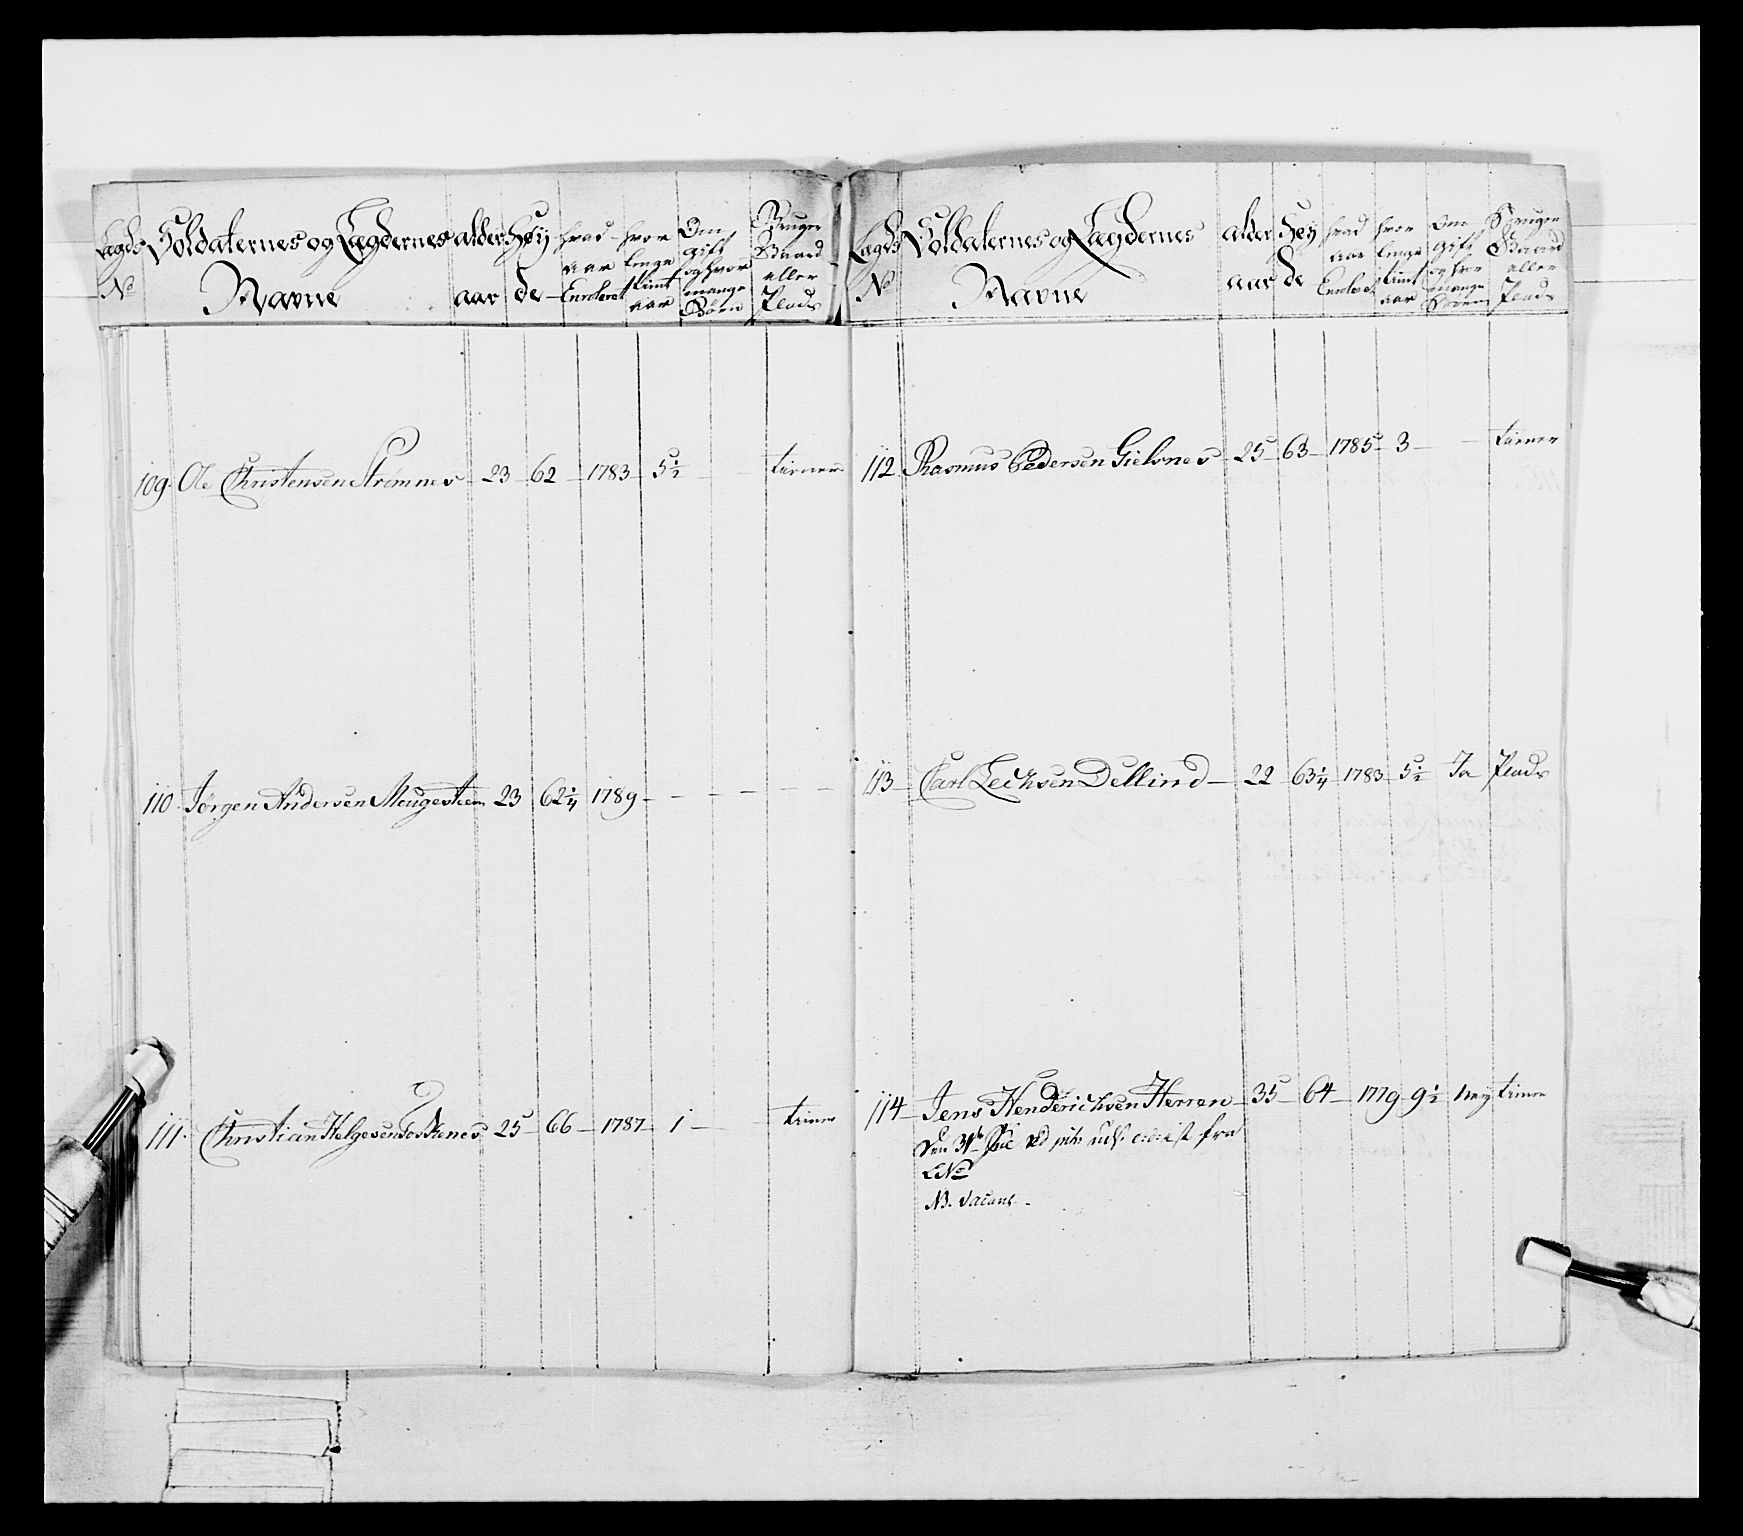 Lægds No Soldaternes og Lægdernes Navne alder aar Høyde hvad aar Enroleret hvor længe tient aar Om gift og hvor mange Børn Bruger Gaard eller Plads
109. Ole Christensen Strømnes 23 62 1783 5½ tiener
110. Jørgen Andersen 23 62¼ 1789
111. Christian Helgesen 25 66 1787 1 tiener
Lægds No Soldaternes og Lægdernes Navne alder aar Høyde hvad aar Enroleret hvor længe tient aar Om gift og hvor mange Børn Bruger Gaard eller Plads
112. Rasmus Pedersen Gielsnes 25 63 1785 3 tiener
113 Carl Dellind 22 63¼ 1783 5½ Ja Plads
114 Jens Henderichsen Herren 35 64 1779 9½ ney tiener
Den 31 fra
LNo
NB. Vacant.